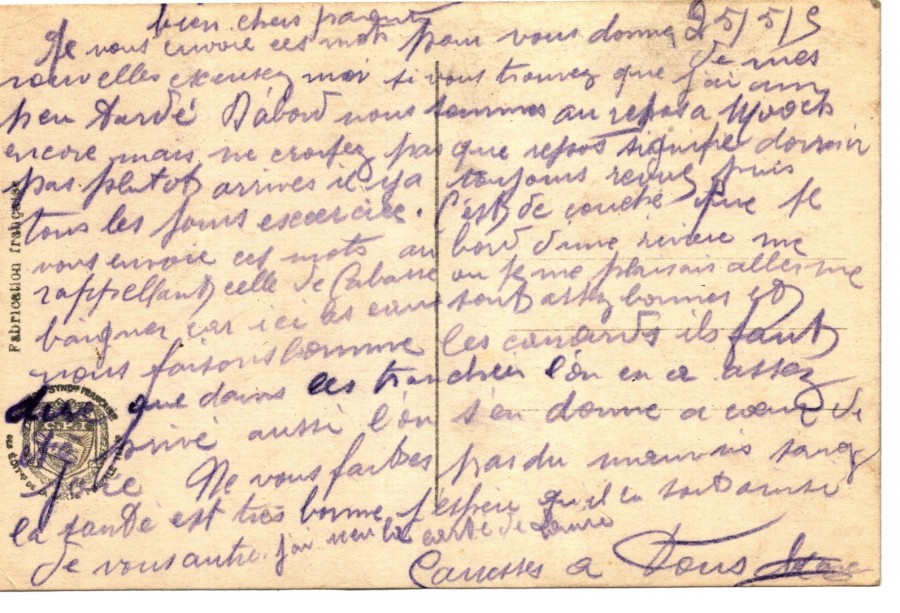 bien chers parents 25/5/5
Je vous envoie ces mots pour vous donner de mes
nouvelles excusez moi si vous trouvez que j'ai un
peu tardé D'abord nous sommes au repos a
encore mais ne croyez pas que repos signifie dormir
pas plutot arrives il y a toujours revue puis
tous les jours exercice. C'est de couché que je
vous envoie ces mots au bord d'une riviere me
rappellant celle de Cabasse ou je me plaisais aller me
baigner car ici les eaux sont assez bonnes et
nous faisons comme les canards ils faut
dire que dans les tranchées l'on en a assez
privé aussi l'on s'en donne a coeur de
joie Ne vous faites pas du mauvais sang
la santé est tres bonne j'espere qu'il en soit ainsi
de vous autre. j'ai reçu la carte de
Caresses a Tous
Fabrication française
SYNDte FRANÇAISE